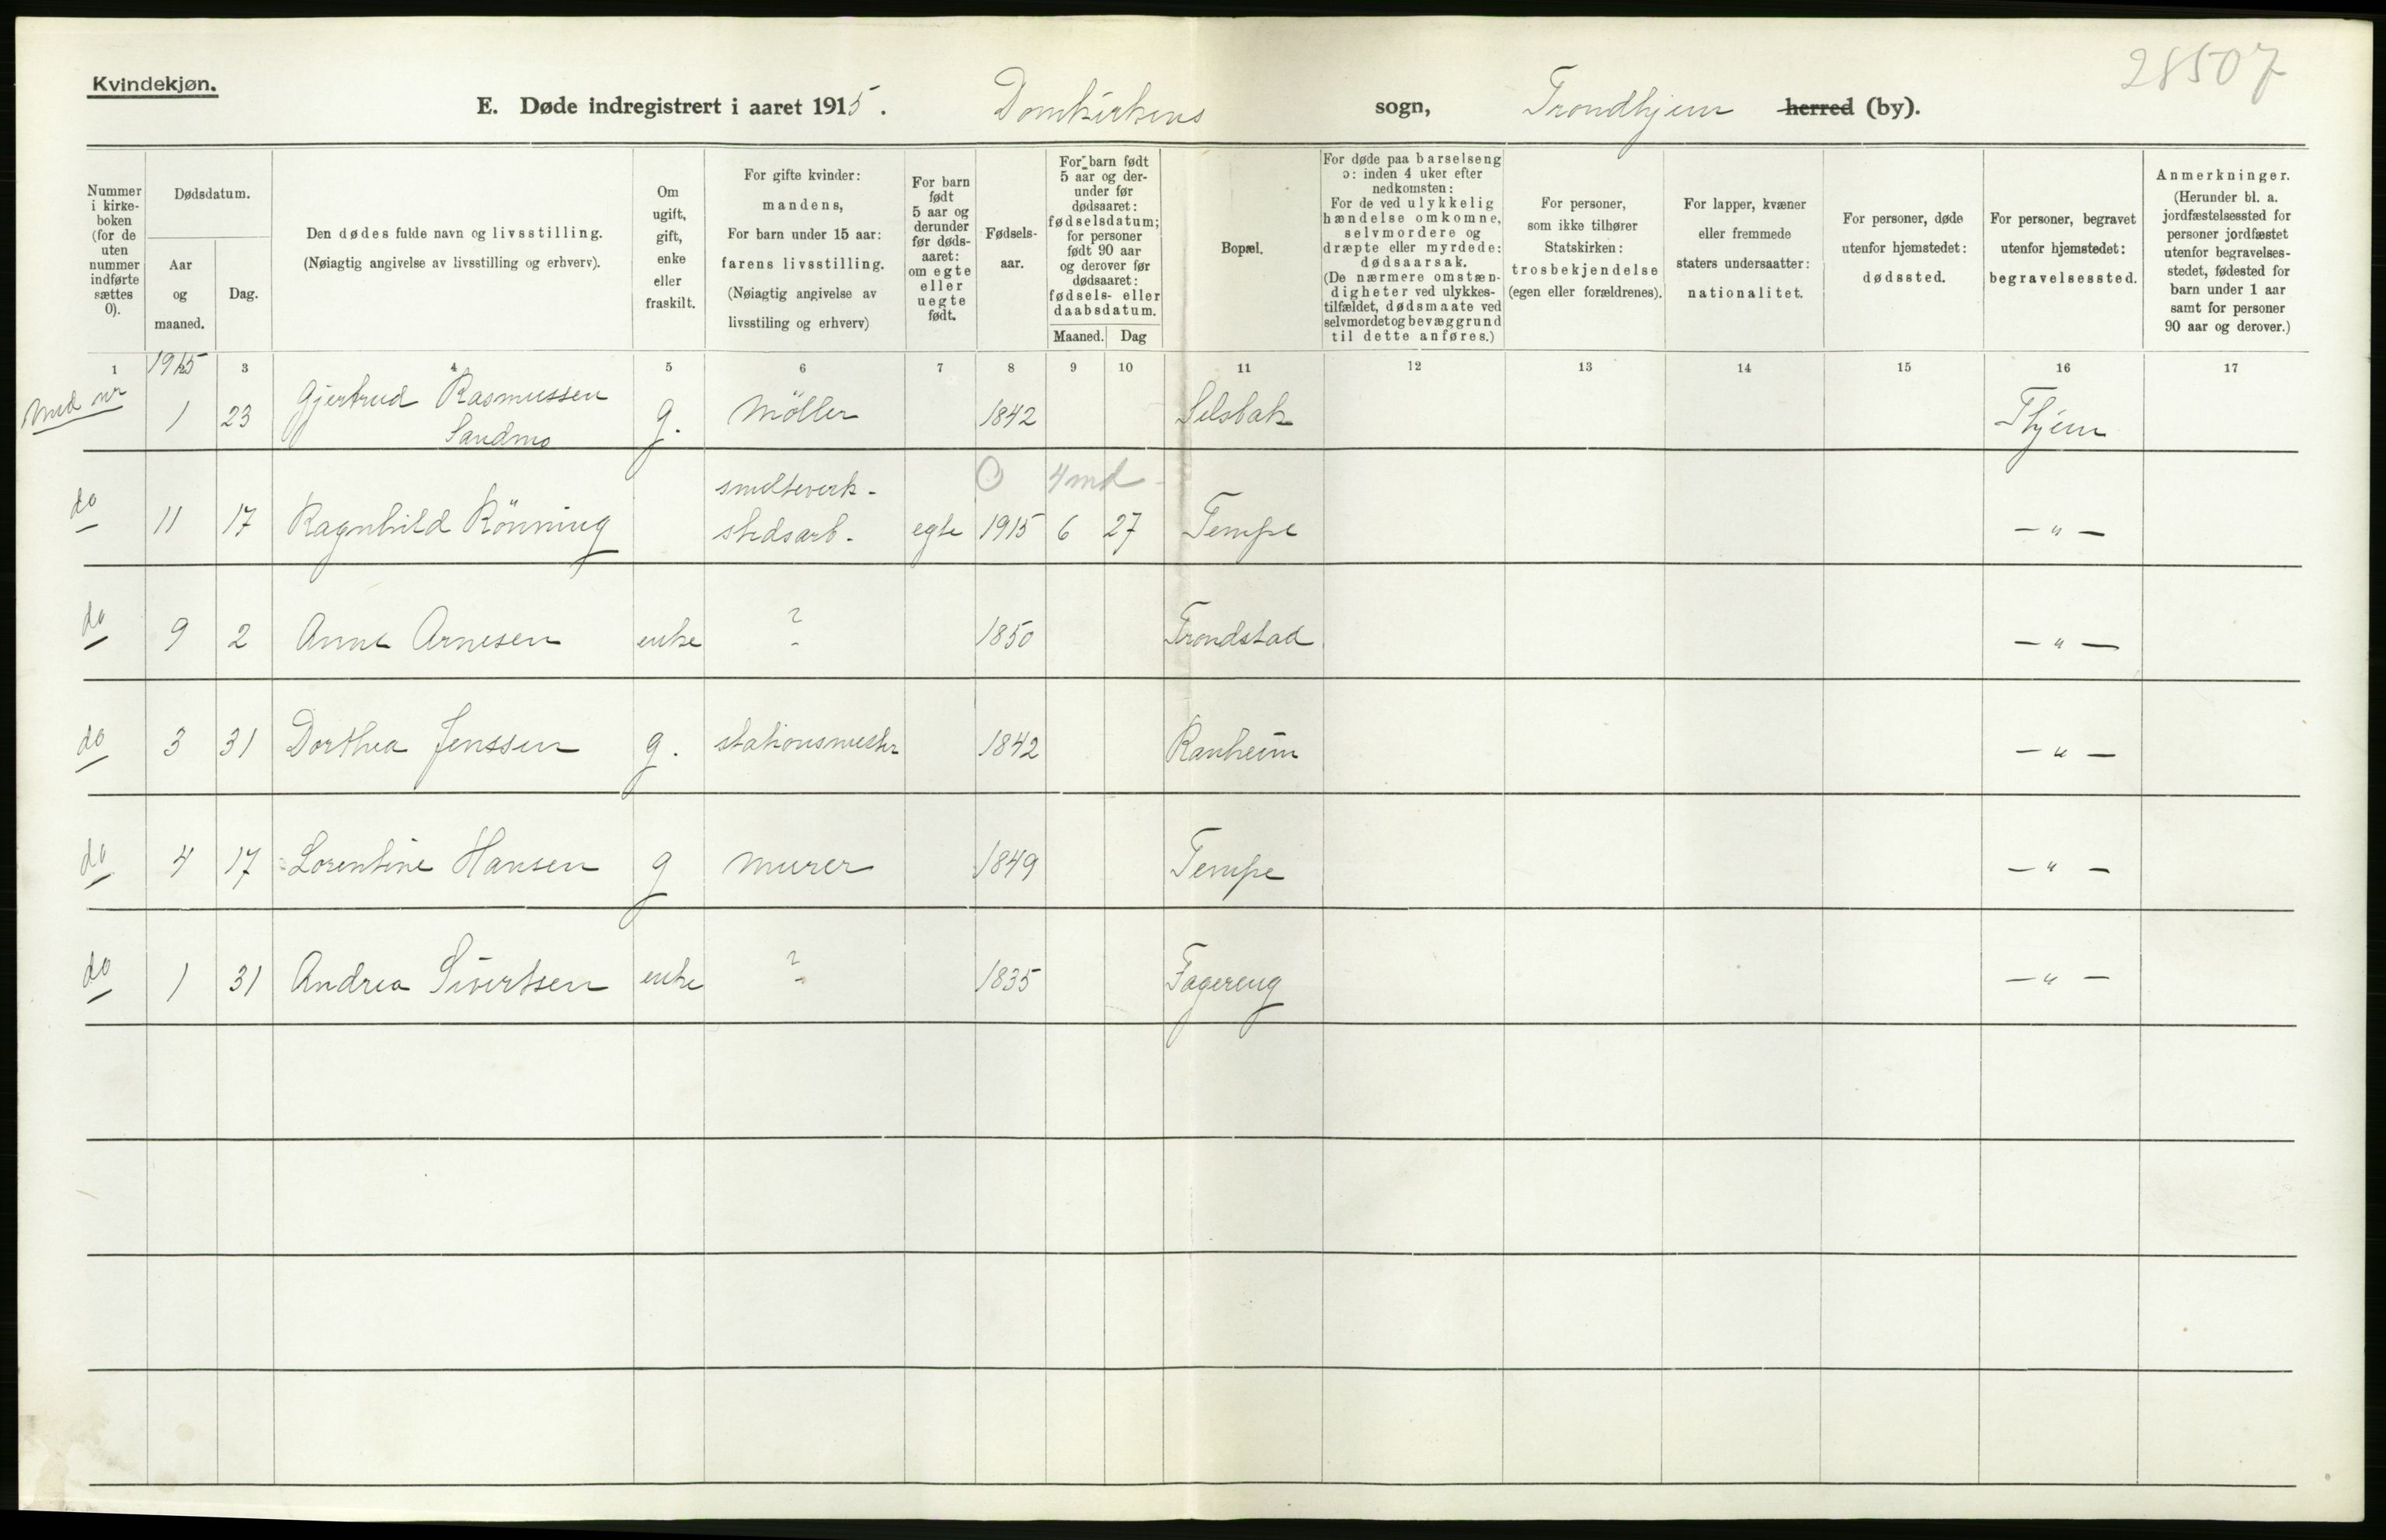 28507
Kvindekjøn.
E. Døde indregistrert i aaret 1915. Domkirkens sogn, Trondhjem herred (by).
Nummer i kirkeboken (for de uten nummer indførte sættes 0).
Dødsdatum.
Aar og maaned.
Dag.
Den dødes fulde navn og livsstilling.
(Nøiagtig angivelse av livsstilling og erhverv).
Om ugift, gift, enke eller fraskilt.
For gifte kvinder: mandens,
For barn under 15 aar: farens livsstilling.
(Nøiagtig angivelse av livsstiling og erhverv)
For barn født 5 aar og derunder før dødsaaret: om egte eller uegte født.
Fødselsaar.
For barn født 5 aar og derunder før dødsaaret: fødselsdatum; for personer født 90 aar og derover før dødsaaret: fødsels- eller daabsdatum.
Maaned. Dag
Bopæl.
For døde paa barselseng ɔ: inden 4 uker efter nedkomsten:
For de ved ulykkelig hændelse omkomne, selvmordere og dræpte eller myrdede: dødsaarsak.
(De nærmere omstændigheter ved ulykkestilfældet, dødsmaate ved selvmordet og bevæggrund til dette anføres.)
For personer, som ikke tilhører Statskirken: trosbekjendelse (egen eller forældrenes).
For lapper, kvæner eller fremmede staters undersaatter: nationalitet.
For personer, døde utenfor hjemstedet: dødssted.
For personer, begravet utenfor hjemstedet: begravelsessted.
Anmerkninger.
(Herunder bl. a. jordfæstelsessted for personer jordfæstet utenfor begravelsesstedet, fødested for barn under 1 aar samt for personer 90 aar og derover.)
1 1915 3 4 5 6 7 8 9 10 11 12 13 14 15 16 17
1 23 Gjertrud Rasmussen Sandmo g. Möller 1842 Selsbak Thjem
0 4 md
do 11 17 Ragnhild Rönning smelteverkstedsarb. egte 1915 6 27 Tempe — " —
do 9 2 Anna Arnesen enke ? 1850 Trondstad — " —
do 3 31 Dorthea Jenssen g. stationsmester 1842 Ranheim — " —
do 4 17 Lorentine Hansen g murer 1849 Tempe — " —
do 1 31 Andrea Sivertsen enke ? 1835 Fagereng — " —